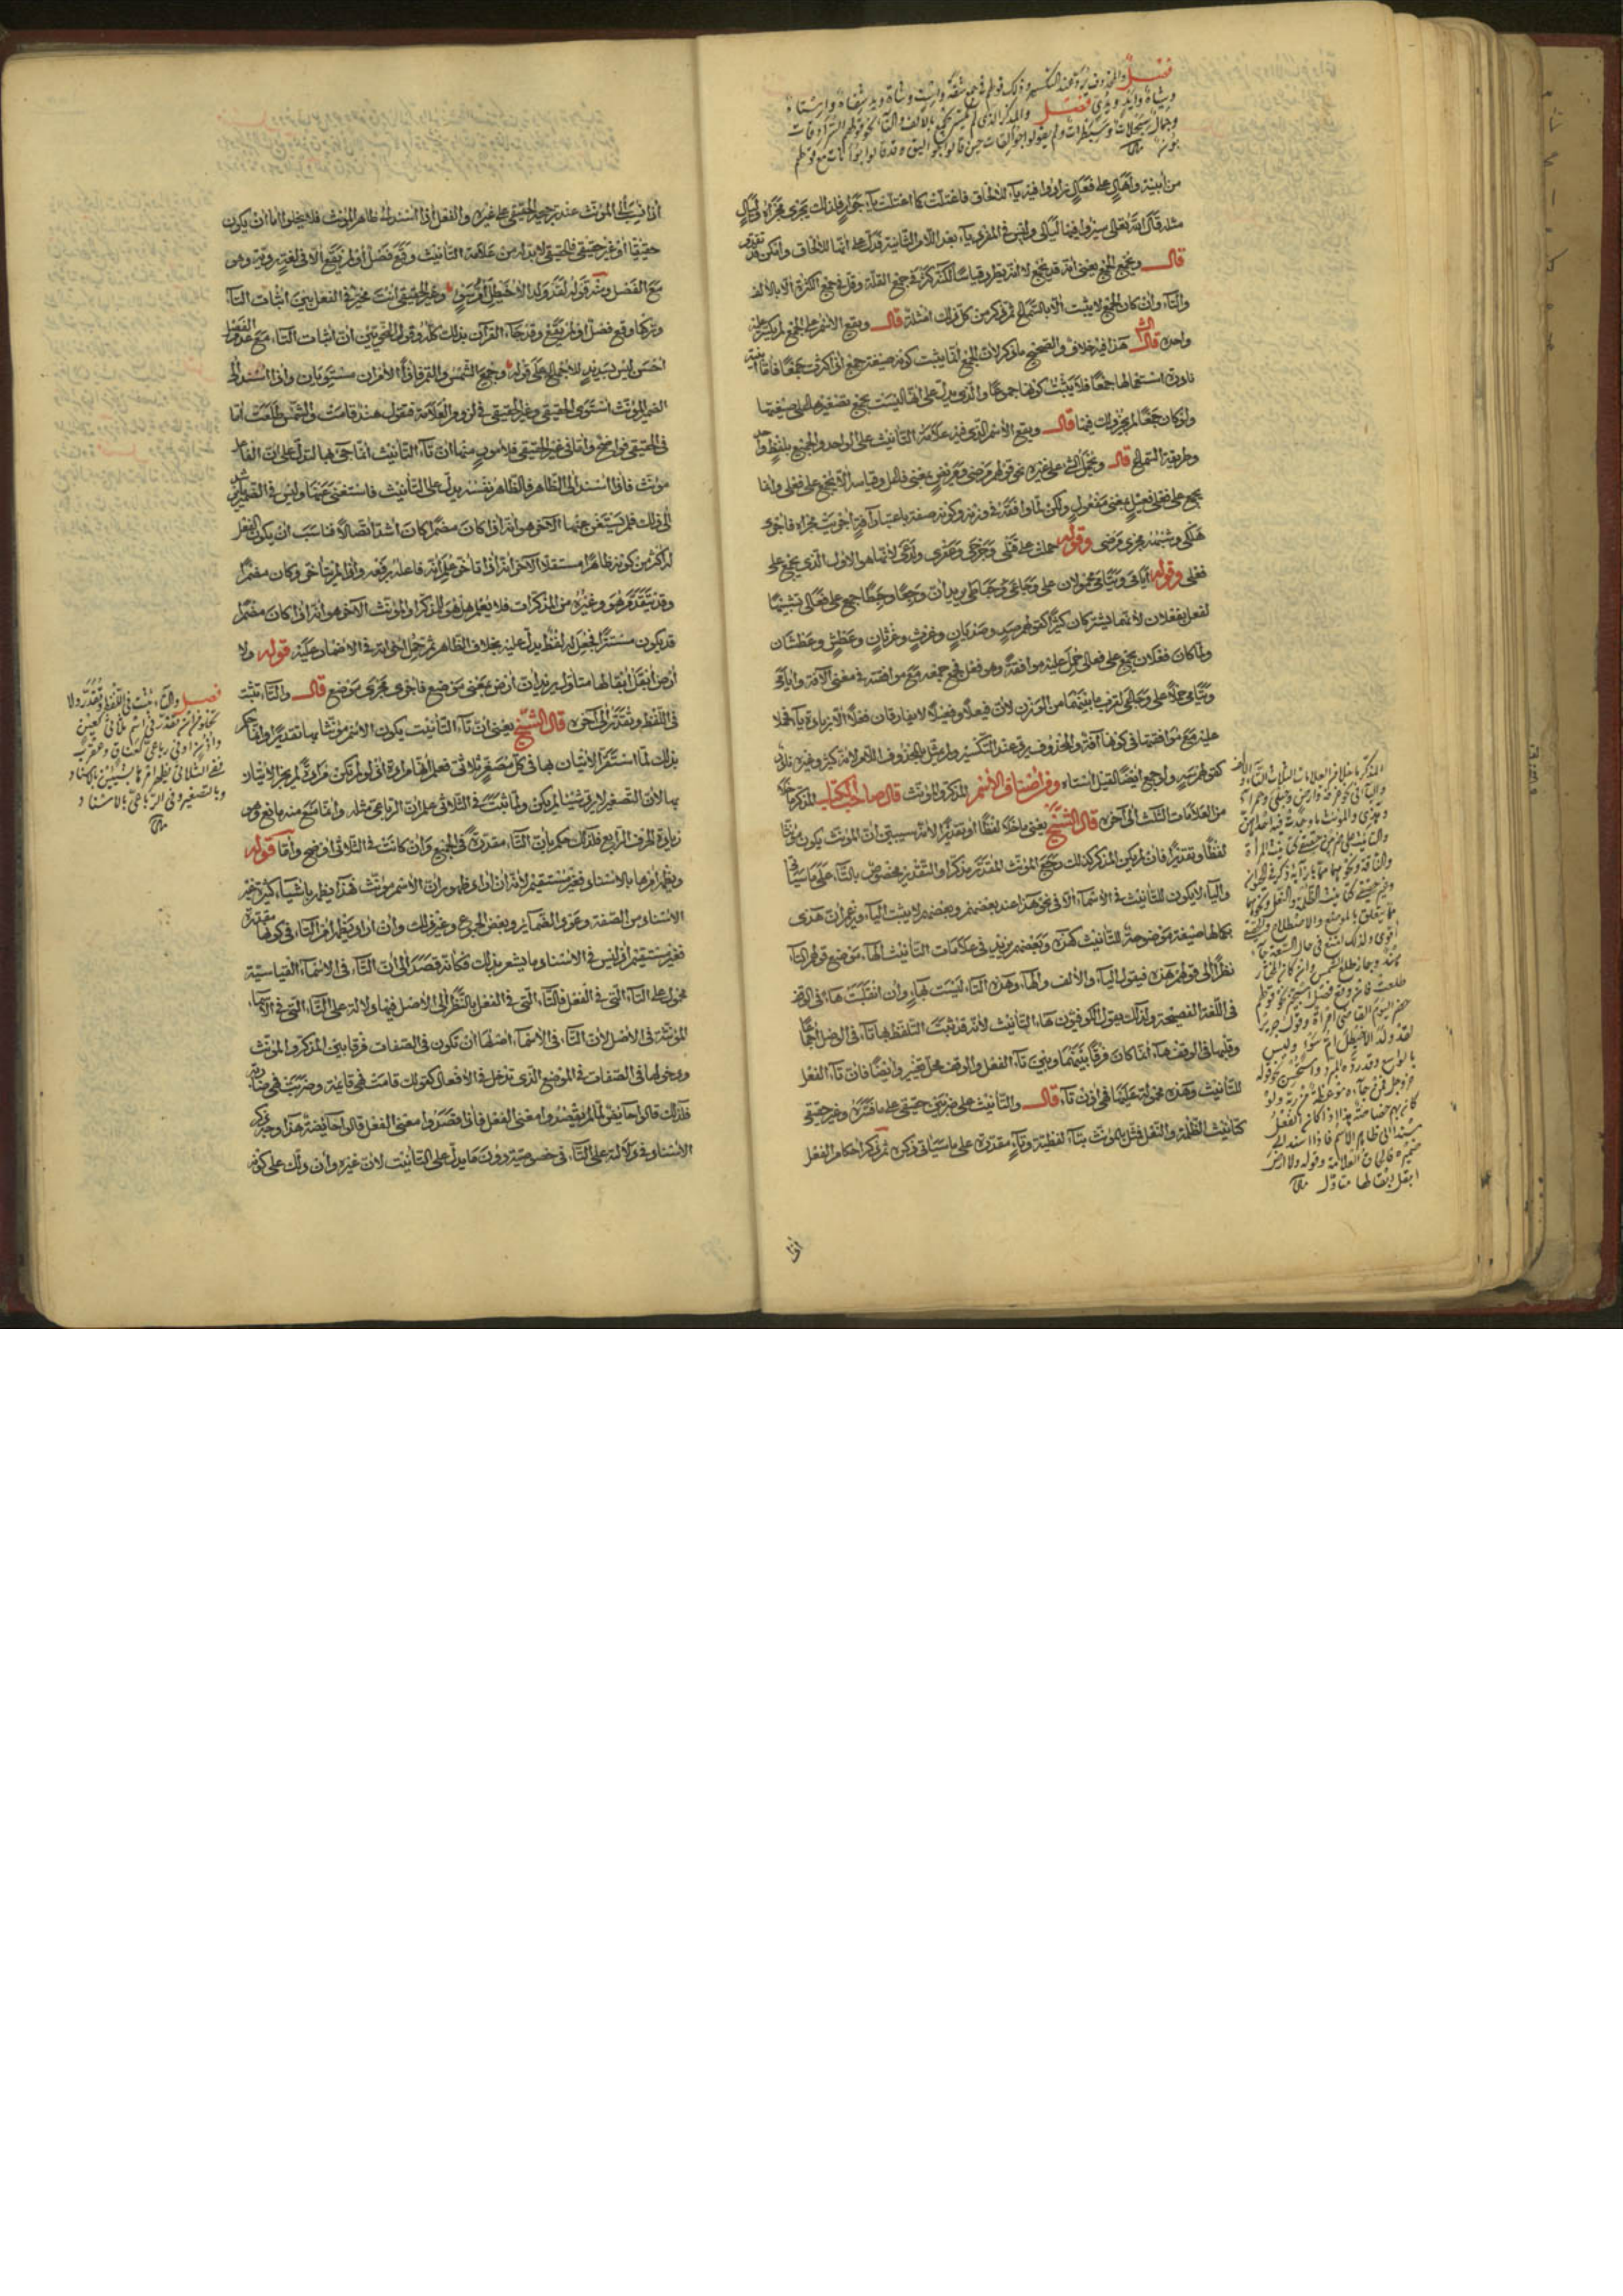 فصل والمحذوف يرد عند التكسير وذلك قولهم في جمع شفة واست وشاة ويد شفاه واستاه
وشياه وأيد ويدي فصل والمذكر الذي لم يكسر يجمع بالألف والتاء نحو قولهم السرادقات
وجمال سبحلات وسبطرات ولم يقولوا جوالقات حين قالوا جواليق وقد قالوا بوانات مع قولهم
بون
من أبنية وأهال على فعال زادوا فيه ياء للالحاق فاعتلت كما اعتلت ياء جوار فلذلك يجرى مجراه ليال
مثله قال الله تعالى سيروا فيها ليالى وليس في المفرد ياء بعد اللام الثانية فدل على انها للالحاق
قال ويجمع الجمع يعنى انه قد يجمع لا انه يطرد قياسا لكنه كثر في جمع القلة وقل في جمع الكثرة الا بالالف
والتاء وان كان الجمع لا يثبت الا بالسماع ثم ذكر من كل ذلك امثلة قال ويقع الاسم على الجمع لم يكسر عليه
واحده قال الشيخ هذا فيه خلاف والصحيح ما ذكر لان الجمع انما يثبت كونه صيغة جمع اذا كثرت جمعا فاما أبنية
نادرة استعمالها جمعا فلا يثبت كونها جموعا والذي يدل على انها ليست بجمع تصغيرهم لها على صيغتها
ولو كان جمعا لم يجز ذلك فيها قال ويقع الاسم الذي فيه علامة التأنيث على الواحد والجمع بلفظ واحد
وطريقه السماع قال ويحمل الشيء على غيره نحو قولهم مرضى ومريض بمعنى فاعل وقياسه الا يجمع على فعلى وانما
يجمع على فعلى فعيل بمعنى مفعول ولكن لما وافقه في وزنه وكونه صفة باعتبار آفة أجريت مجراه فاجرى
هلكى وشبهه مجرى مرضى وقوله حملت على قتلى وجرحى وعقرى ولدغى لانها هو الاول الذي يجمع على
فعلى وقوله أيامى ويتامى محمولان على وجاعى وحباطى يريد أن وجعا وحبطا جمع على فعالى تشبيها
لفعل بفعلان لأنهما يشتركان كثيرا كقولهم صد وصديان وغرث وغرثان وعطش وعطشان
ولما كان فعلان يجمع على فعالى حمل عليه موافقه وهو فعل فجمع جمعه مع موافقته في معنى الآفة وأيامى
ويتامى حملا على وجاعى لقرب ما بينهما من الوزن لان فيعلا وفعيلا لا يفارقان فعلا الا بزيادة ياء فحملا
عليه مع موافقتهما في كونها آفة والمحذوف يرد عند التكسير ولم يمثل بالمحذوف اللام لانه كثير وغيره نادر
كقولهم سه ولا جمع ايضا لقيل أستاه ومن أصناف الاسم المذكر والمؤنث قال صاحب الكتاب المذكر ما خلا
من العلامات الثلث الى آخره قال الشيخ يعنى ما خلا لفظا او تقديرا لانه سيبين أن المؤنث يكون مؤنثا
لفظا وتقديرا فان لم يكن المذكر كذلك رجع المؤنث المقدر مذكرا والتقدير مخصوص بالتاء على ما سيأتي
والياء لا يكون للتأنيث في الاسماء الا في نحو هذا عند بعضهم وبعضهم لا يثبت الياء ويزعم أن هذى
بكمالها صيغة موضوعة للتأنيث كهذه وبعضهم يزيد في علامات التأنيث الهاء موضع قولهم التاء
نظرا الى قولهم هذه فيقول الياء والألف والهاء وهذه التاء ليست هاء وأن انقلبت هاء في الوقف
في اللغة الفصيحة ولذلك يقول الكوفيون هاء التأنيث لأنه قد ثبت التلفظ بها تاء في الوصل اجماعا
وقلبها في الوقف هاء انما كان فرقا بينها وبين تاء الفعل والوقف محل تغيير وايضا فان تاء الفعل
للتأنيث وهذه محمولة عليها فهي اذن تاء قال والتأنيث على ضربين حقيقى على ما فسره وغير حقيقى
كتأنيث الظلمة والنعل فمثل بالمؤنث بتاء لفظية وتاء مقدرة على ما سيأتى ذكره ثم ذكر احكام الفعل
المذكر ما خلا من العلامات الثلاث التاء والألف
والياء في نحو غرفة وأرض وحبلى وحمراء
وهذى والمؤنث ما وجدت فيه إحداهن
والتأنيث على ضربين حقيقى كتأنيث المرأة
والناقة ونحوهما مما بازائه ذكر في الحيوان
وغير حقيقى كتأنيث الظلمة والنعل ونحوهما
مما يتعلق بالوضع والاصطلاح والحقيقى
أقوى ولذلك امتنع في حال السعة جاء
هند وجاز طلع الشمس وان كان المختار
طلعت فان وقع فصل استجيز نحو قولهم
حضر القاضى اليوم امرأة وقول جرير
لقد ولد الأخيطل أم سوء وليس
بالواسع وقد رده المبرد واستحسن نحو قوله
عز وجل فمن جاءه موعظة من ربه ولو
كان بهم خصاصة هذا اذا كان الفعل
مسندا الى ظاهر الاسم فاذا اسند الى
ضميره فالحاق العلامة وقوله ولا أرض
أبقل إبقالها متأول
اذا
اذا نسب الى المؤنث عند ترجيح الحقيقى على غيره والفعل اذا اسند الى ظاهر المؤنث فلا يخلو اما أن يكون
حقيقيا أو غير حقيقى فالحقيقى لا بد له من علامة التأنيث وقع فصل أو لم يقع الا في لغة رديئة وهى
مع الفصل ومنه قوله لقد ولد الأخيطل أم سوء وغير الحقيقى أنت مخير في الفعل بين اثبات التاء
وتركها وقع فصل أو لم يقع وقد جاء القرآن بذلك كله وقول النحويين أن اثبات التاء مع عدم الفصل
أحسن ليس بسديد للاجماع على قوله وجمع الشمس والقمر فاذا الأمران مستويان وإذا اسند الى
الضمير المؤنث استوى الحقيقى وغير الحقيقى في لزوم العلامة فتقول هند قامت والشمس طلعت اما
في الحقيقى فواضح وأما في غير الحقيقى فلأمور منها ان تاء التأنيث انما جىء بها لتدل على ان الفاعل
مؤنث فاذا اسند الى الظاهر فالظاهر نفسه يدل على التأنيث فاستغنى عنها وليس في الضمير
الى ذلك فلم يستغن عنها الآخر هو انه اذا كان مضمرا كان أشد اتصالا فناسب ان يكون الفعل
له أكثر من كونه ظاهرا مستقلا الآخر انه اذا تأخر علم انه فاعله برفعه واذا لم يتأخر وكان مضمرا
وقد تقدم هو وغيره من المذكرات فلا يعلم هل هو للمذكر أو للمؤنث الآخر هو انه اذا كان مضمرا
قد يكون مستترا فجعل له لفظ يدل عليه بخلاف الظاهر ثم حمل اخواته في الاضمار عليه قوله ولا
أرض أبقل إبقالها متأول يريد أن أرض بمعنى موضع فاجرى مجرى موضع قال والتاء تثبت
في اللفظ وتقدر الى آخره قال الشيخ يعنى أن تاء التأنيث يكون الاسم مؤنثا بها تقديرا وانما حكم
بذلك لما استقر الاتيان بها في كل مصغر ثلاثى فعلم انها مرادة اذ لو لم تكن مرادة لم يجز الاتيان
بها لأن التصغير لا يرد شيئا لم يكن ولما ثبت في الثلاثى علم ان الرباعى مثله وانما منع منه مانع وهو
زيادة الحرف الرابع فلذلك حكم بان التاء مقدرة في الجميع وان كانت في الثلاثى أوضح وأما قوله
ويظهر أمرها بالاسناد فغير مستقيم لأنه ان اراد ظهور أن الاسم مؤنث فهذا يظهر بأشياء كثيرة غير
الاسناد من الصفة وعود الضمائر وبعض الجموع وغير ذلك وأن اراد يظهر أمر التاء في كونها مقدرة
فغير مستقيم اذ ليس في الاسناد ما يشعر بذلك فكأنه قصد الى ان التاء في الاسماء القياسية
محمول على التاء التي في الفعل فالتاء التي في الفعل بالنظر الى الأصل فيها دلالة على التاء التي في الأسماء
المؤنثة في الأصل لأن التاء في الأسماء اصلها ان تكون في الصفات فرقا بين المذكر والمؤنث
ودخولها في الصفات في الموضع الذي تدخل فيه الأفعال كقولك قامت فهى قائمة وضربت فهى ضاربة
فلذلك قالوا حائض لما لم يقصدوا معنى الفعل فاذا قصدوا معنى الفعل قالوا حائضة هذا وجه ذكر
الاسناد في دلالة على التاء في خصوصيته دون ما يدل على التأنيث لان غيره وأن دلك على كونه
فصل والتاء تثبت في اللفظ وتقدر ولا
تخلو من ان تقدر في اسم ثلاثى كعين
وأذن أو في رباعى كعناق وعقرب
ففي الثلاثى يظهر أمرها بشيئين بالاسناد
وبالتصغير وفي الرباعى بالاسناد